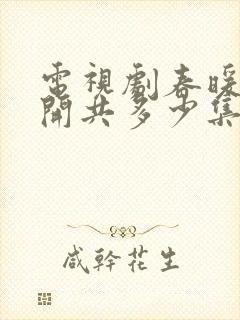 電視劇春暖
開共多少集
咸幹花生